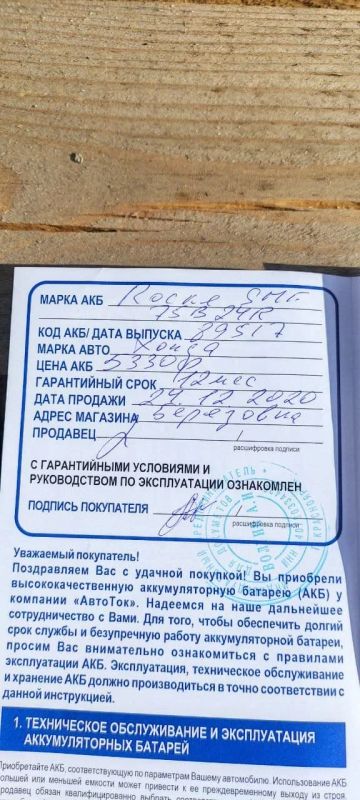 МАРКА АКБ
75B24R
КОД АКБ/ ДАТА ВЫПУСКА 39517
МАРКА АВТО Хонда
ЦЕНА АКБ 5330
ГАРАНТИЙНЫЙ СРОК 12 мес
ДАТА ПРОДАЖИ 12 2020
АДРЕС МАГАЗИНА Березовка
ПРОДАВЕЦ /
расшифровка подписи
С ГАРАНТИЙНЫМИ УСЛОВИЯМИ И
РУКОВОДСТВОМ ПО ЭКСПЛУАТАЦИИ ОЗНАКОМЛЕН
ПОДПИСЬ ПОКУПАТЕЛЯ /
расшифровка подписи
Уважаемый покупатель!
Поздравляем Вас с удачной покупкой! Вы приобрели
высококачественную аккумуляторную батарею (АКБ) у
компании «АвтоТок». Надеемся на наше дальнейшее
сотрудничество с Вами. Для того, чтобы обеспечить долгий
срок службы и безупречную работу аккумуляторной батареи,
просим Вас внимательно ознакомиться с правилами
эксплуатации АКБ. Эксплуатация, техническое обслуживание
и хранение АКБ должно производиться в точно соответствии с
данной инструкцией.
1. ТЕХНИЧЕСКОЕ ОБСЛУЖИВАНИЕ И ЭКСПЛУАТАЦИЯ
АККУМУЛЯТОРНЫХ БАТАРЕЙ
Приобретайте АКБ, соответствующую по параметрам Вашему автомобилю. Использование АКБ
большей или меньшей емкости может привести к ее преждевременному выходу из строя.
продавец обязан квалифицированно выбрать